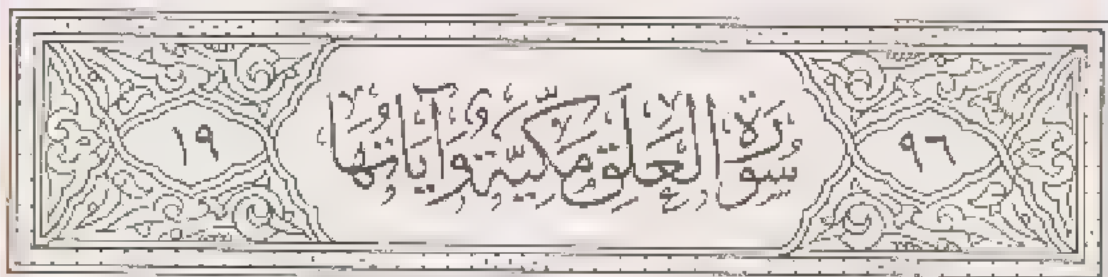 ٩٦
سُورَةُ الْعَلَقِ مَكِّيَّة وَآيَاتُهَا
١٩